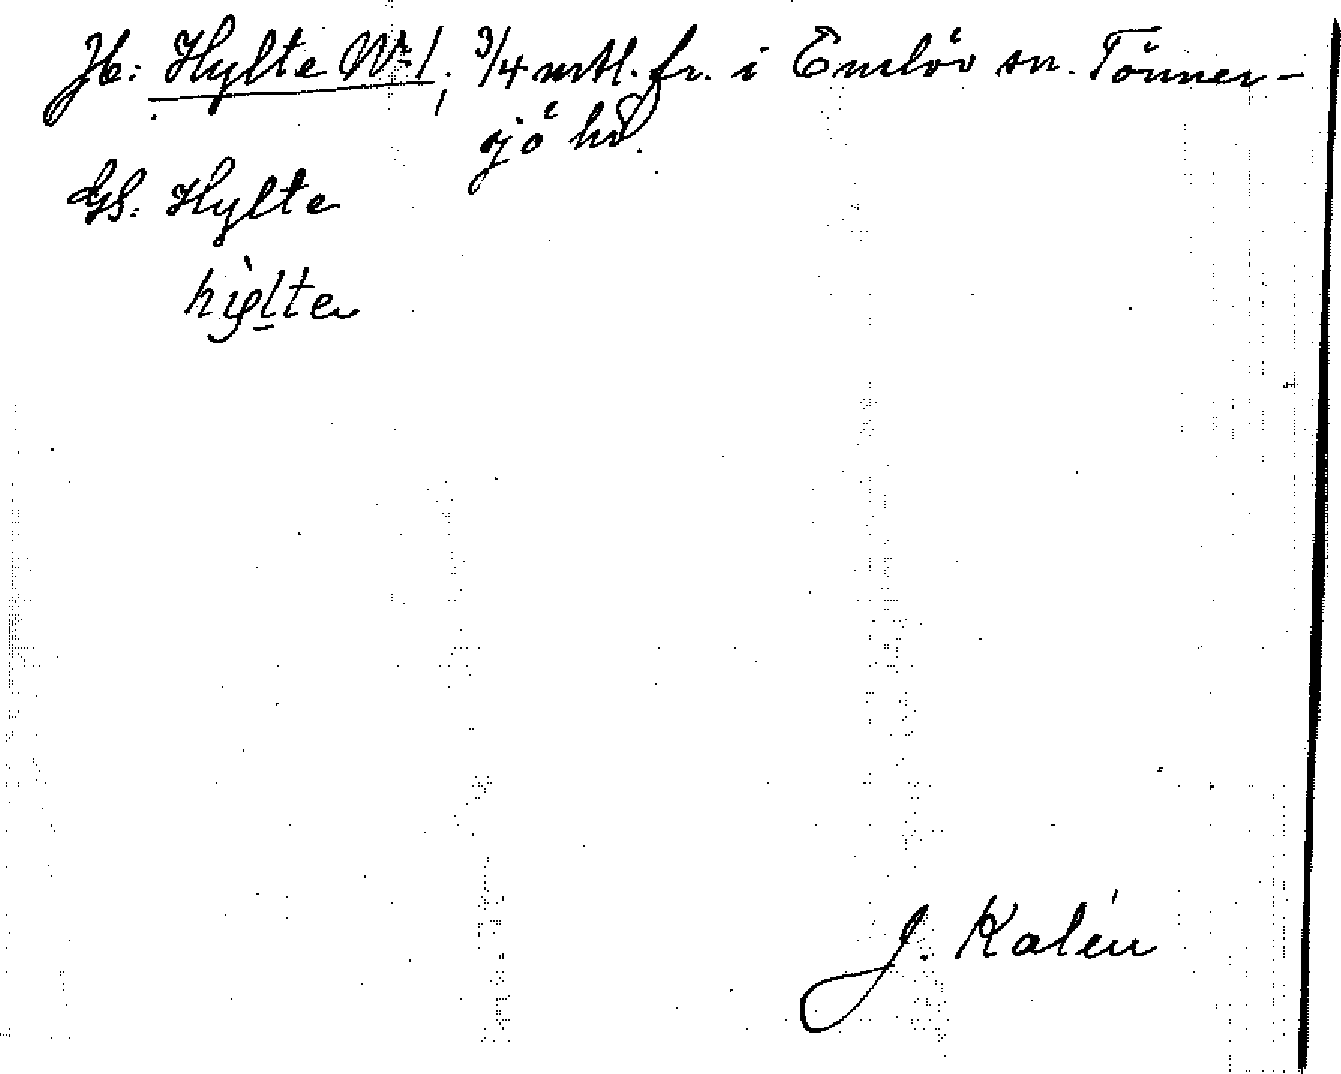 Jb: Hylte No 1, 3/4 mtl. fr. i Enslöv sn. Tönner-
sjö hd.
GS. Hylte
hỳlte
J. Kalén